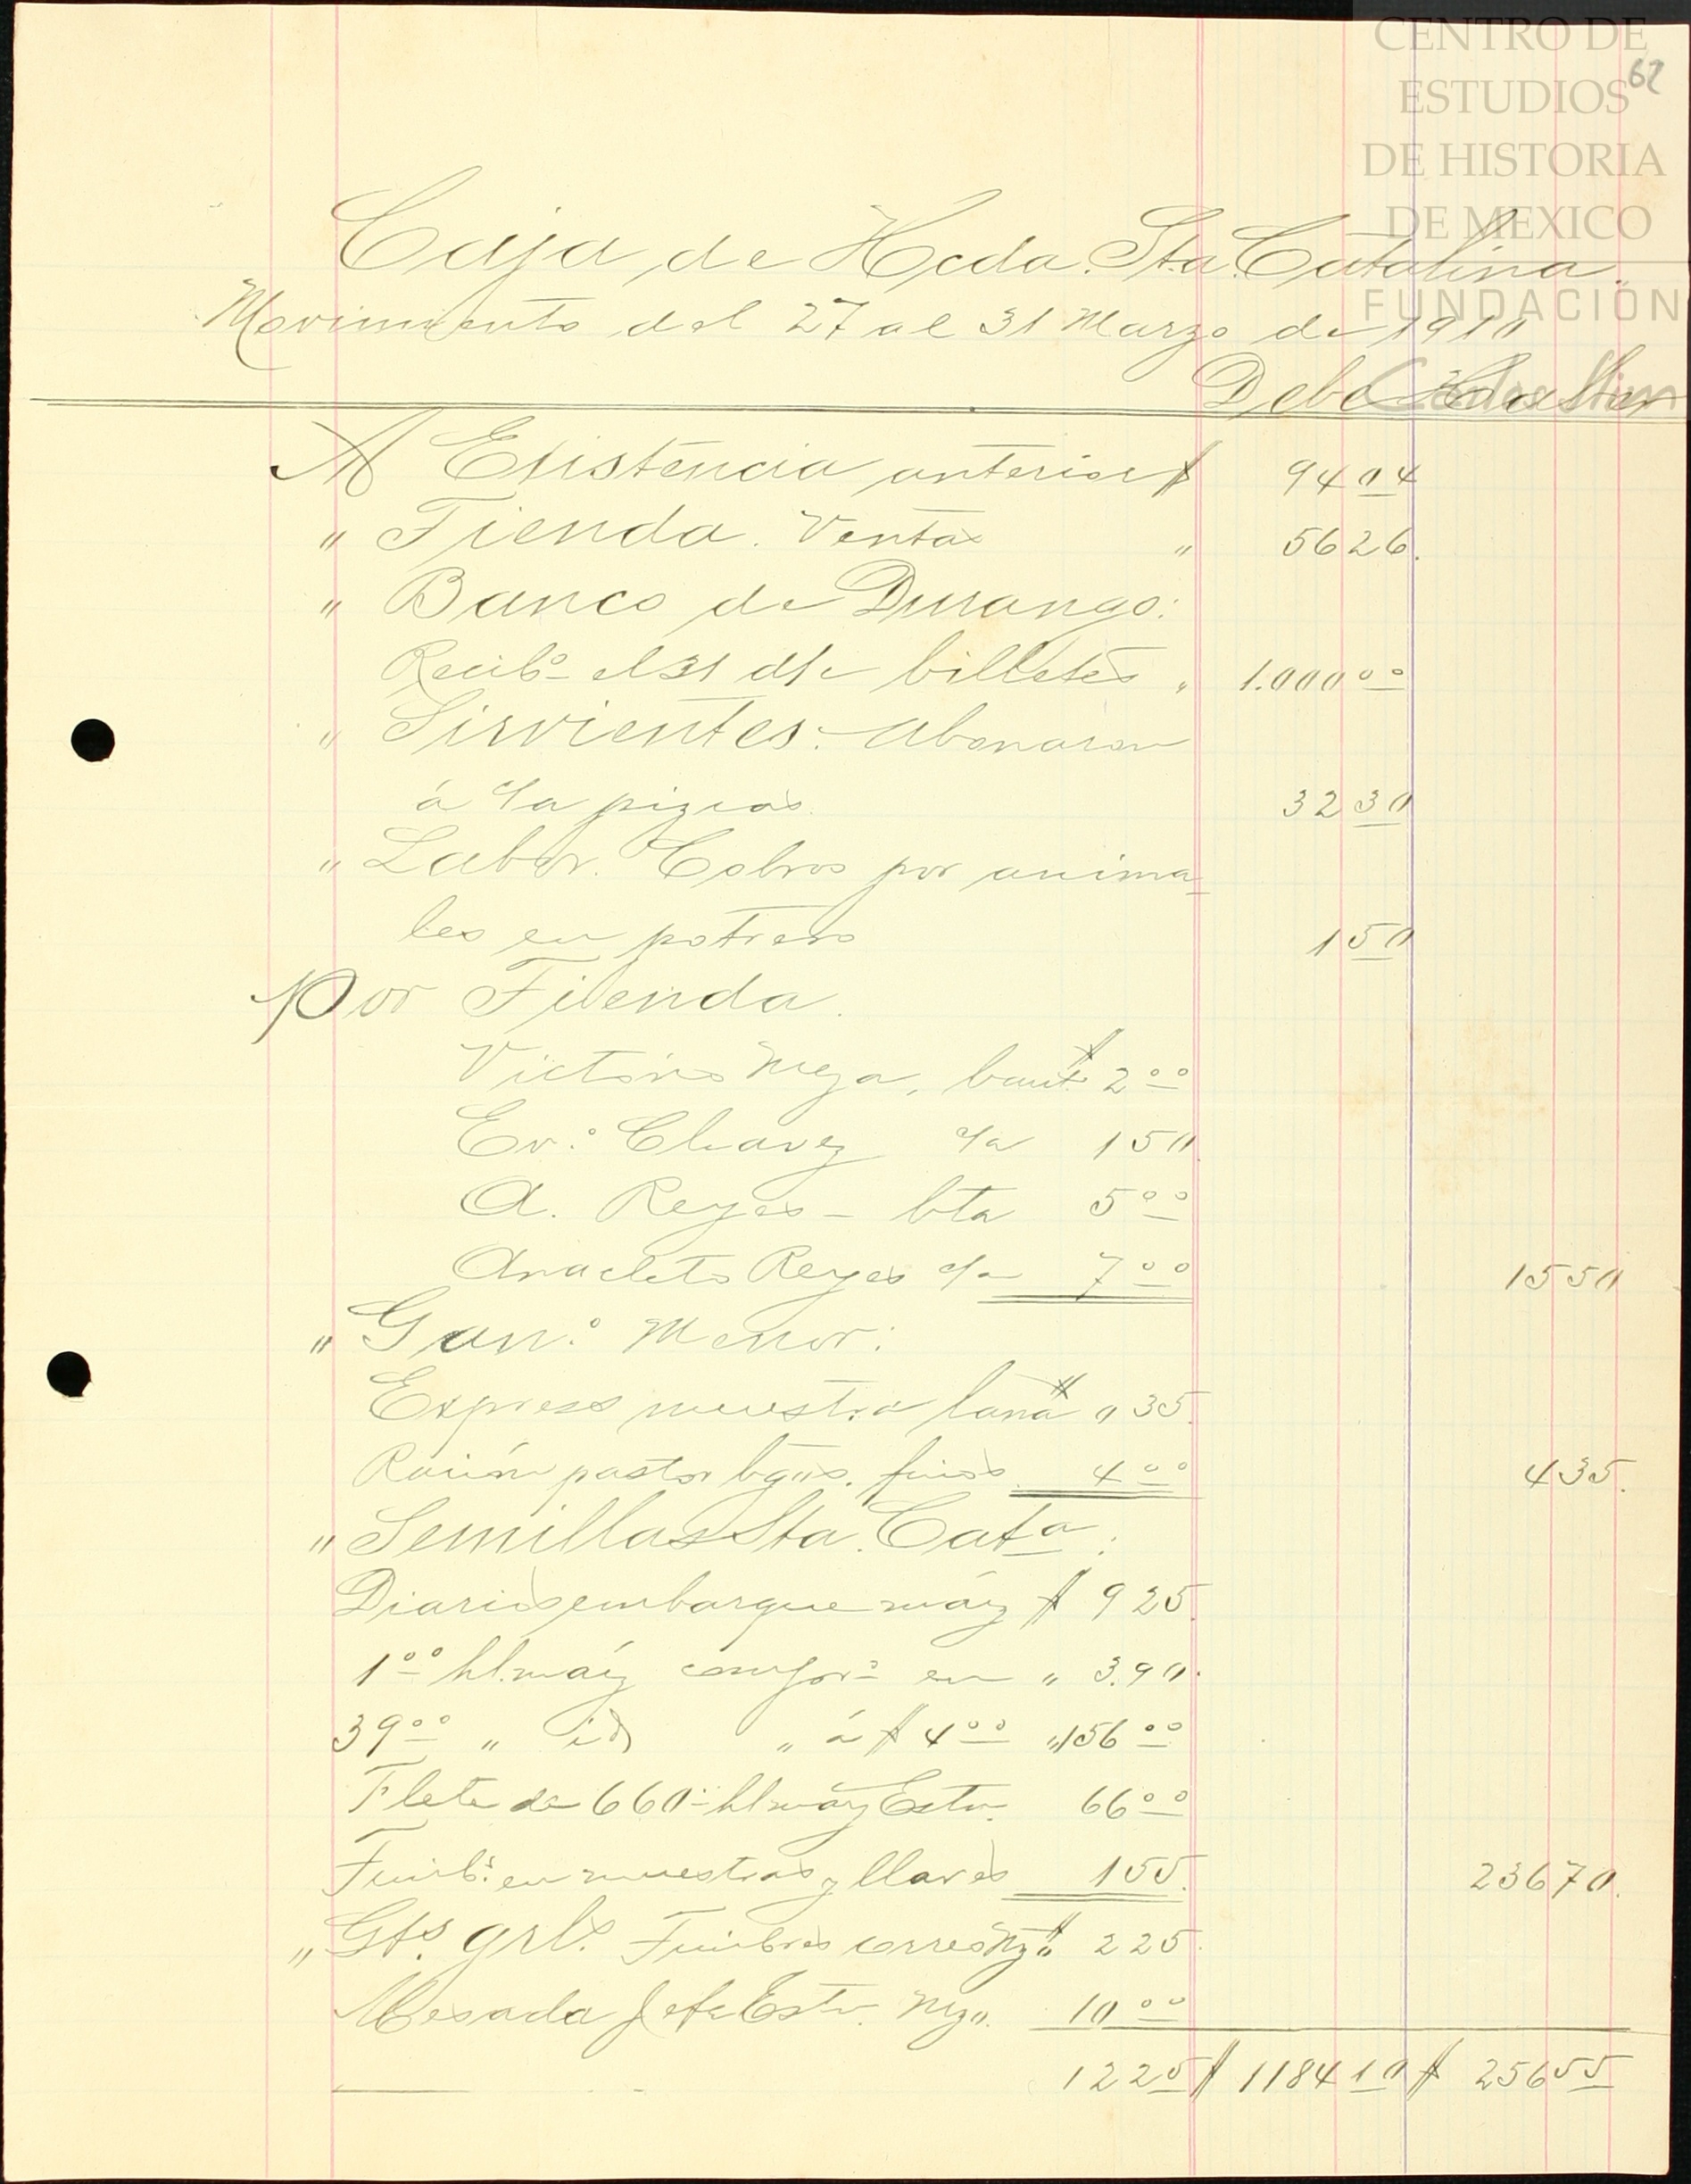 CENTRO DE
ESTUDIOS
DE HISTORIA
DE MEXICO
FUNDACIÓN
Carlos Slim
62
Caja de Hcda. Sta. Catalina.
Movimiento del 27 al 31 Marzo de 1910
Debe Haber
A Existencia anterior $ 94 04
" Tienda. Ventas " 56 26.
" Banco de Durango:
Recibº el 31 billetes " 1.000 00
" Sirvientes: Abonaron
á pizcas. 32 30
" Labor. Cobros por anima-
les en potrero 1 50
Por Tienda.
Victorio Mza, $ 2 00
Evº Chavez 1 50.
A. Reyes - bta 5 00
Anacleto Reyes 7 00 15 50
" Ganº Menor:
Express muestra lana $ 0 35.
Ración pastor finos 4 00 4 35.
" Semillas Sta. Cata:
Diarios embarque maíz $ 9 25.
1 00 hl. maíz en " 3.90.
39 00 " id " á $ 4 00 " 156 00
Flete de 660 hl maíz Estn. 66 00
Timbs. en muestras y llaves 1 55. 236 70.
" Gts. grls. Timbres corres $ 2 25.
Mesada Jefe Estn. Mzo. 10 00
12 25 $ 1184 10 $ 256 55